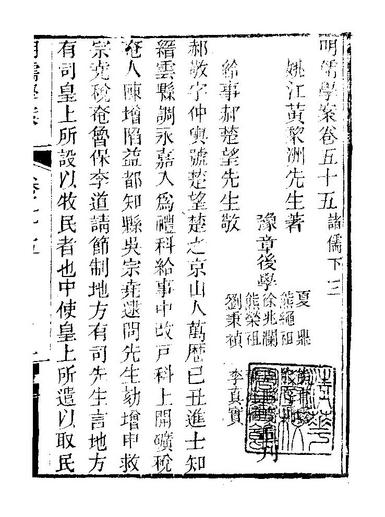 明儒學案卷五十五 諸儒下三
姚江黃黎洲先生著
豫章後學
夏鼎
熊繩祖
徐兆瀾
熊榮祖
劉秉楨
李真實
刊
給事郝楚望先生敬
郝敬字仲輿號楚望楚之京山人萬曆己丑進士知
縉雲縣調永嘉入爲禮科給事中改戶科上開礦稅
奄人陳增陷益都知縣吳宗堯逮問先生劾增申救
宗堯稅奄魯保李道請節制地方有司先生言地方
有司皇上所設以牧民者也中使皇上所遣以取民